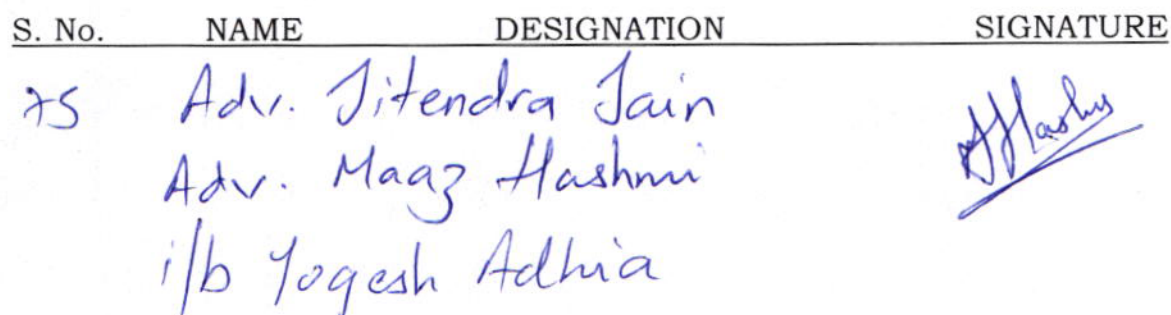 S. No. NAME DESIGNATION SIGNATURE
75 Adv. Jitendra Jain
Adv. Maaz Hashmi
i/b Yogesh Adhia